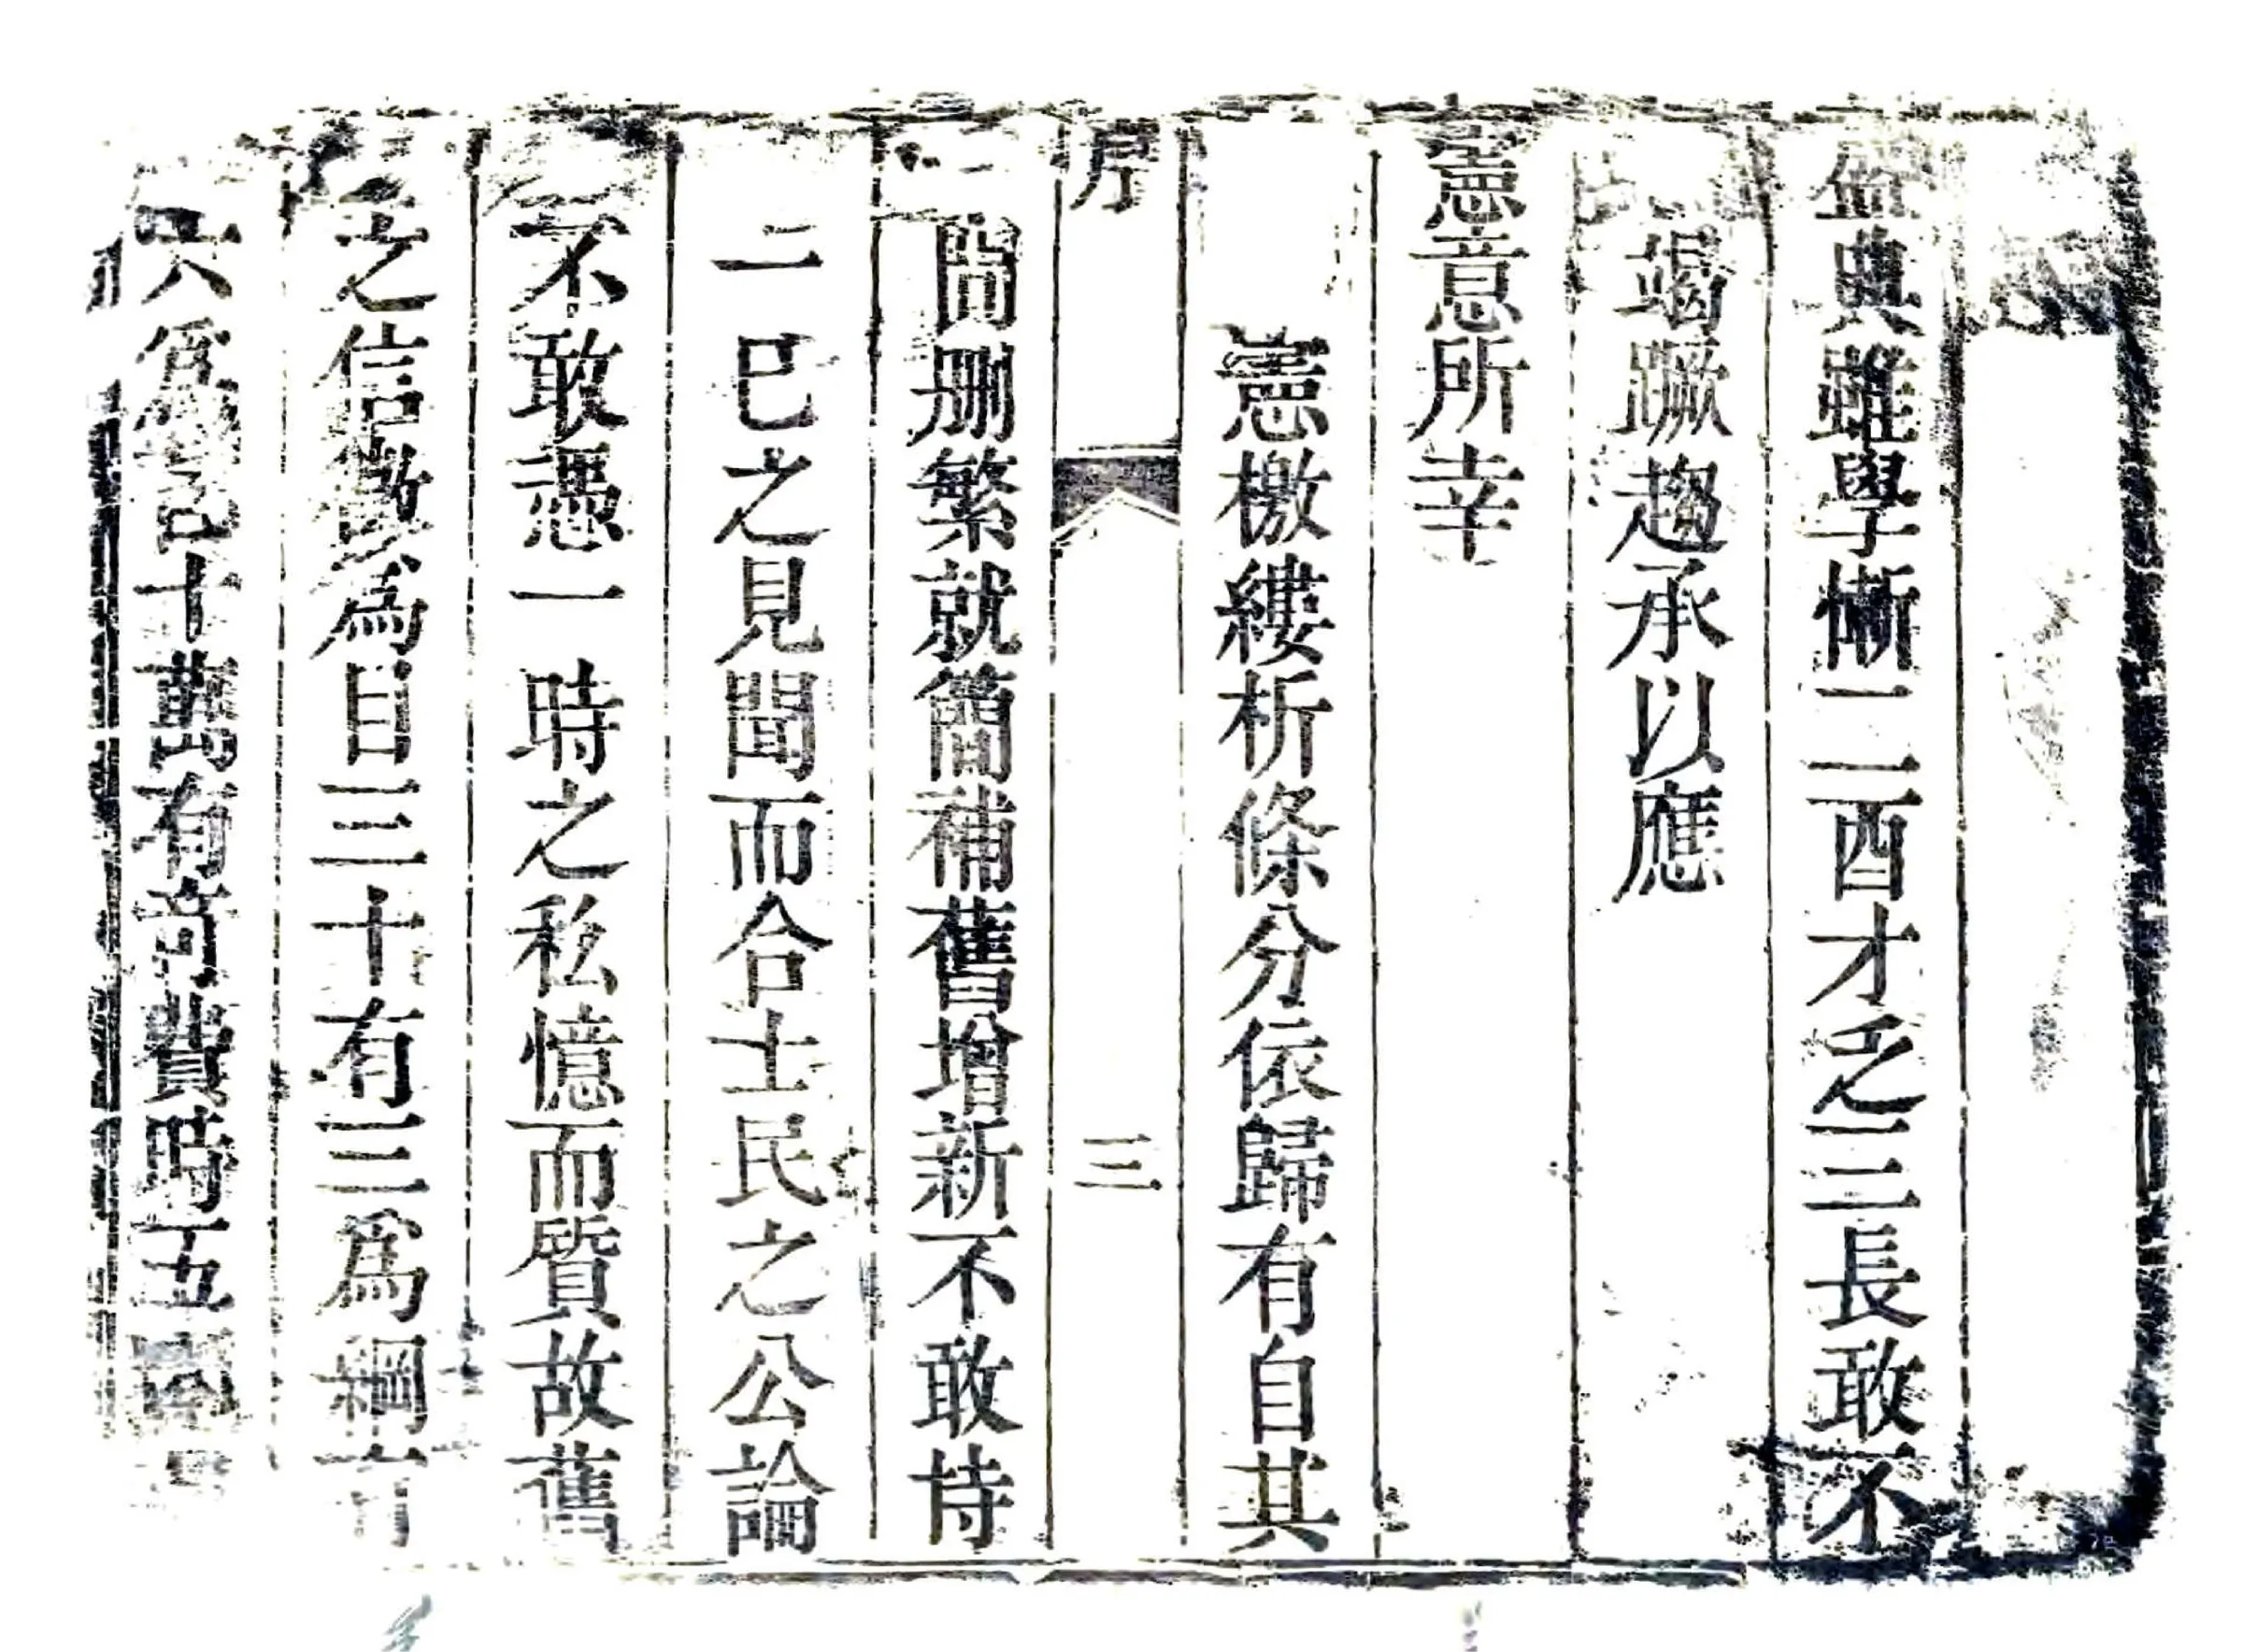 典雖學慚二酉才乏三長敢不
竭蹶趨承以應
憲意所幸
憲檄縷析條分依歸有自其
序
三
間刪繁就簡補舊增新不敢恃
一己之見聞而合士民之公論
不敢憑一時之私憶而質故舊
之信徵為目三十有三為綱有
六為言十萬有奇費時五